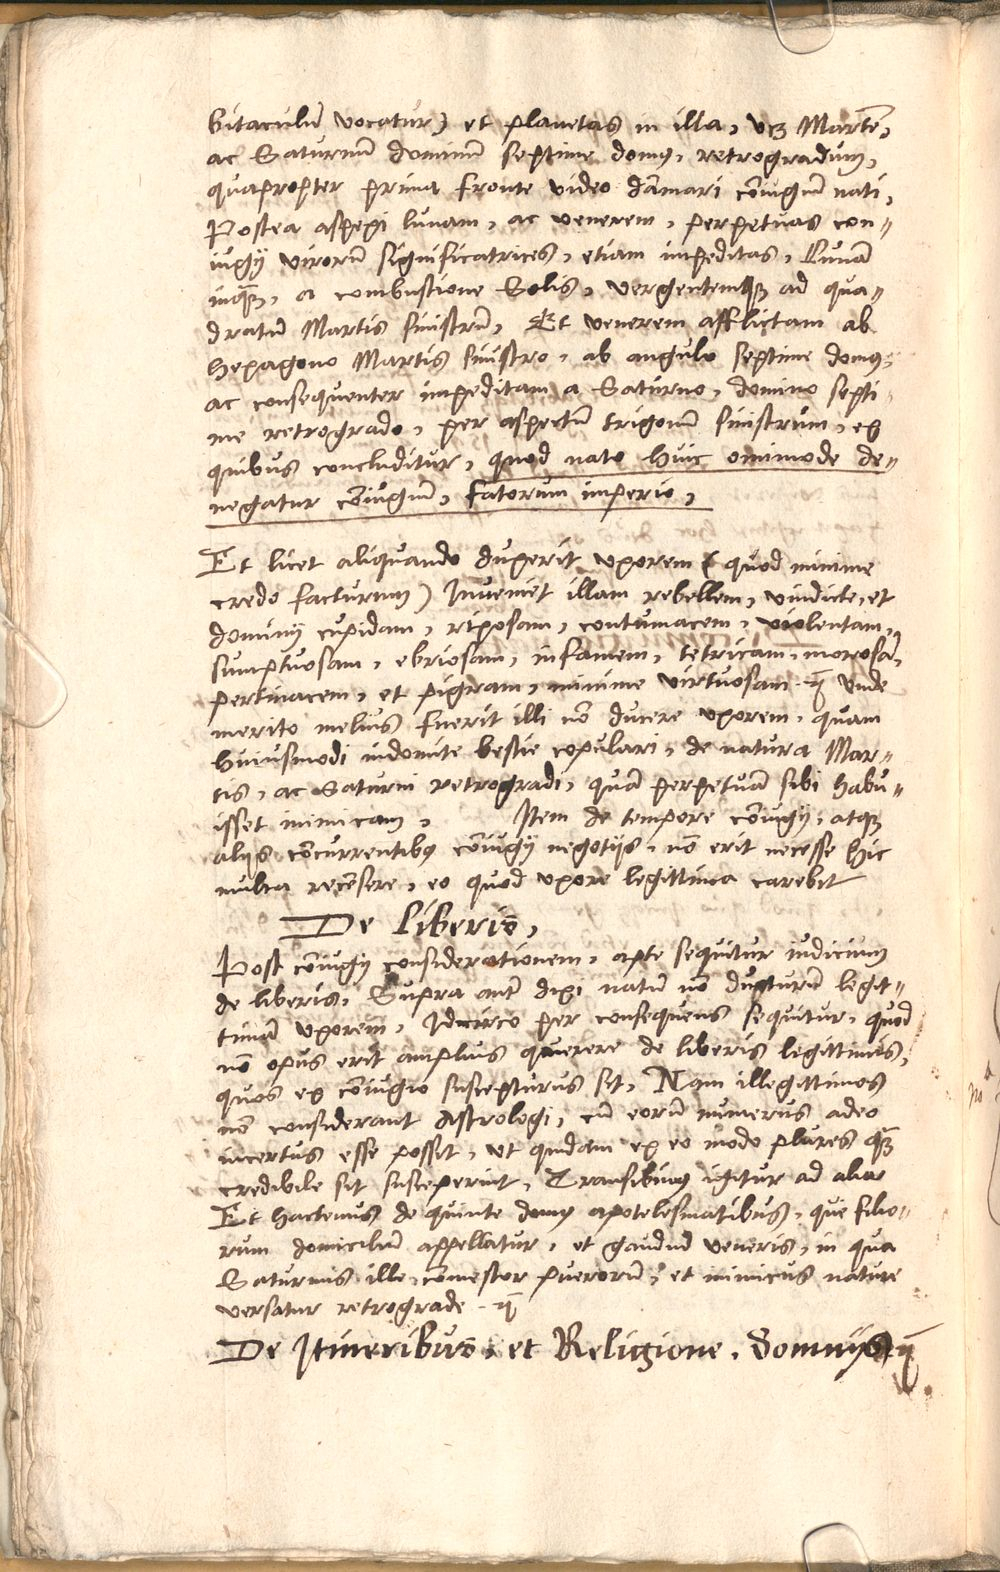 bitaculũ vocatur) et planetas in illa, vcꝫ Martẽ,
ac Saturnũ dominũ septime domꝰ, retrogradum,
quapropter prima fronte video dãmari cõiugiũ nati,
Postea aspexi lunam, ac venerem, perpetuas con〃
iugij virorũ significatrices, etiam impeditas, Lunã
inquã, a combustione Solis, vergentemqꝫ ad qua〃
dratũ Martis sinistrũ, Et venerem afflictam ab
hexagono Martis sinistro, ab angulo septime domꝰ,
ac consequenter impeditam a Saturno, domino septi
me retrogrado, per aspectũ trigonũ sinistrum, ex
quibus concluditur, quod nato huic omimode de〃
negatur cõiugiũ, fatorum imperio,
Et licet aliquando duxerit vxorem ( quod minime
credo facturum) Inueniet illam rebellem, vindicte, et
dominij cupidam, rixosam, contumacem, violentam,
sumptuosam, ebriosam, infamem, tetricam, morosã,
pertinacem, et pigram, minime virtuosam Vnde
merito melius fuerit illi nõ ducere vxorem, quam
huiusmodi indomite bestie copulari, de natura Mar〃
tis, ac Saturni retrogradi, quã perpetuã sibi habu〃
isset inimicam, Item de tempore cõiugij, atqꝫ
alijs cõncurrentibꝰ cõiugij negotijs, nõ erit necesse hic
multa recẽsere, eo quod vxore legittima carebit
De liberis,
Post cõiugij considerationem, apte sequitur iudicium
de liberis, Supra autẽ dixi natũ nõ ducturũ legit〃
timã vxorem, Idcirco per consequens sequitur, quod
nõ opus erit amplius querere de liberis legittimis,
quos ex cõiugio suscepturus sit, Nam illegittimos
nõ considerant Astrologi, cũ eorũ numerus adeo
incertus esse possit, vt quidam ex eo modo plures quã
credibile sit susceperint, Transibimꝰ igitur ad alia
Et hactenus de quinte domꝰ apotelesmatibus, que filio〃
rum domiciliũ appellatur, et gaudiũ veneris, in qua
Saturnus ille comestor puerorũ, et inimicus nature
versatur retrograde
De Itineribus, et Religione, Somnijsqꝫ